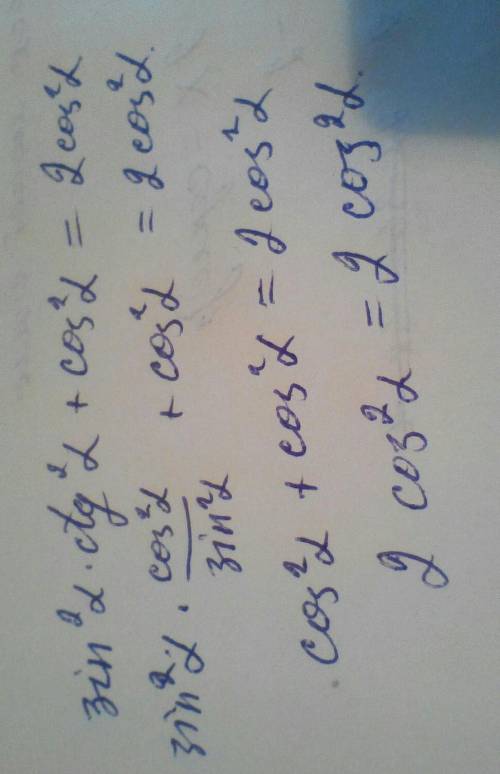 sin²α · ctg²α + cos²α = 2cos²α
sin²α · cos²α/sin²α + cos²α = 2cos²α.
cos²α + cos²α = 2cos²α
2cos²α = 2cos²α.